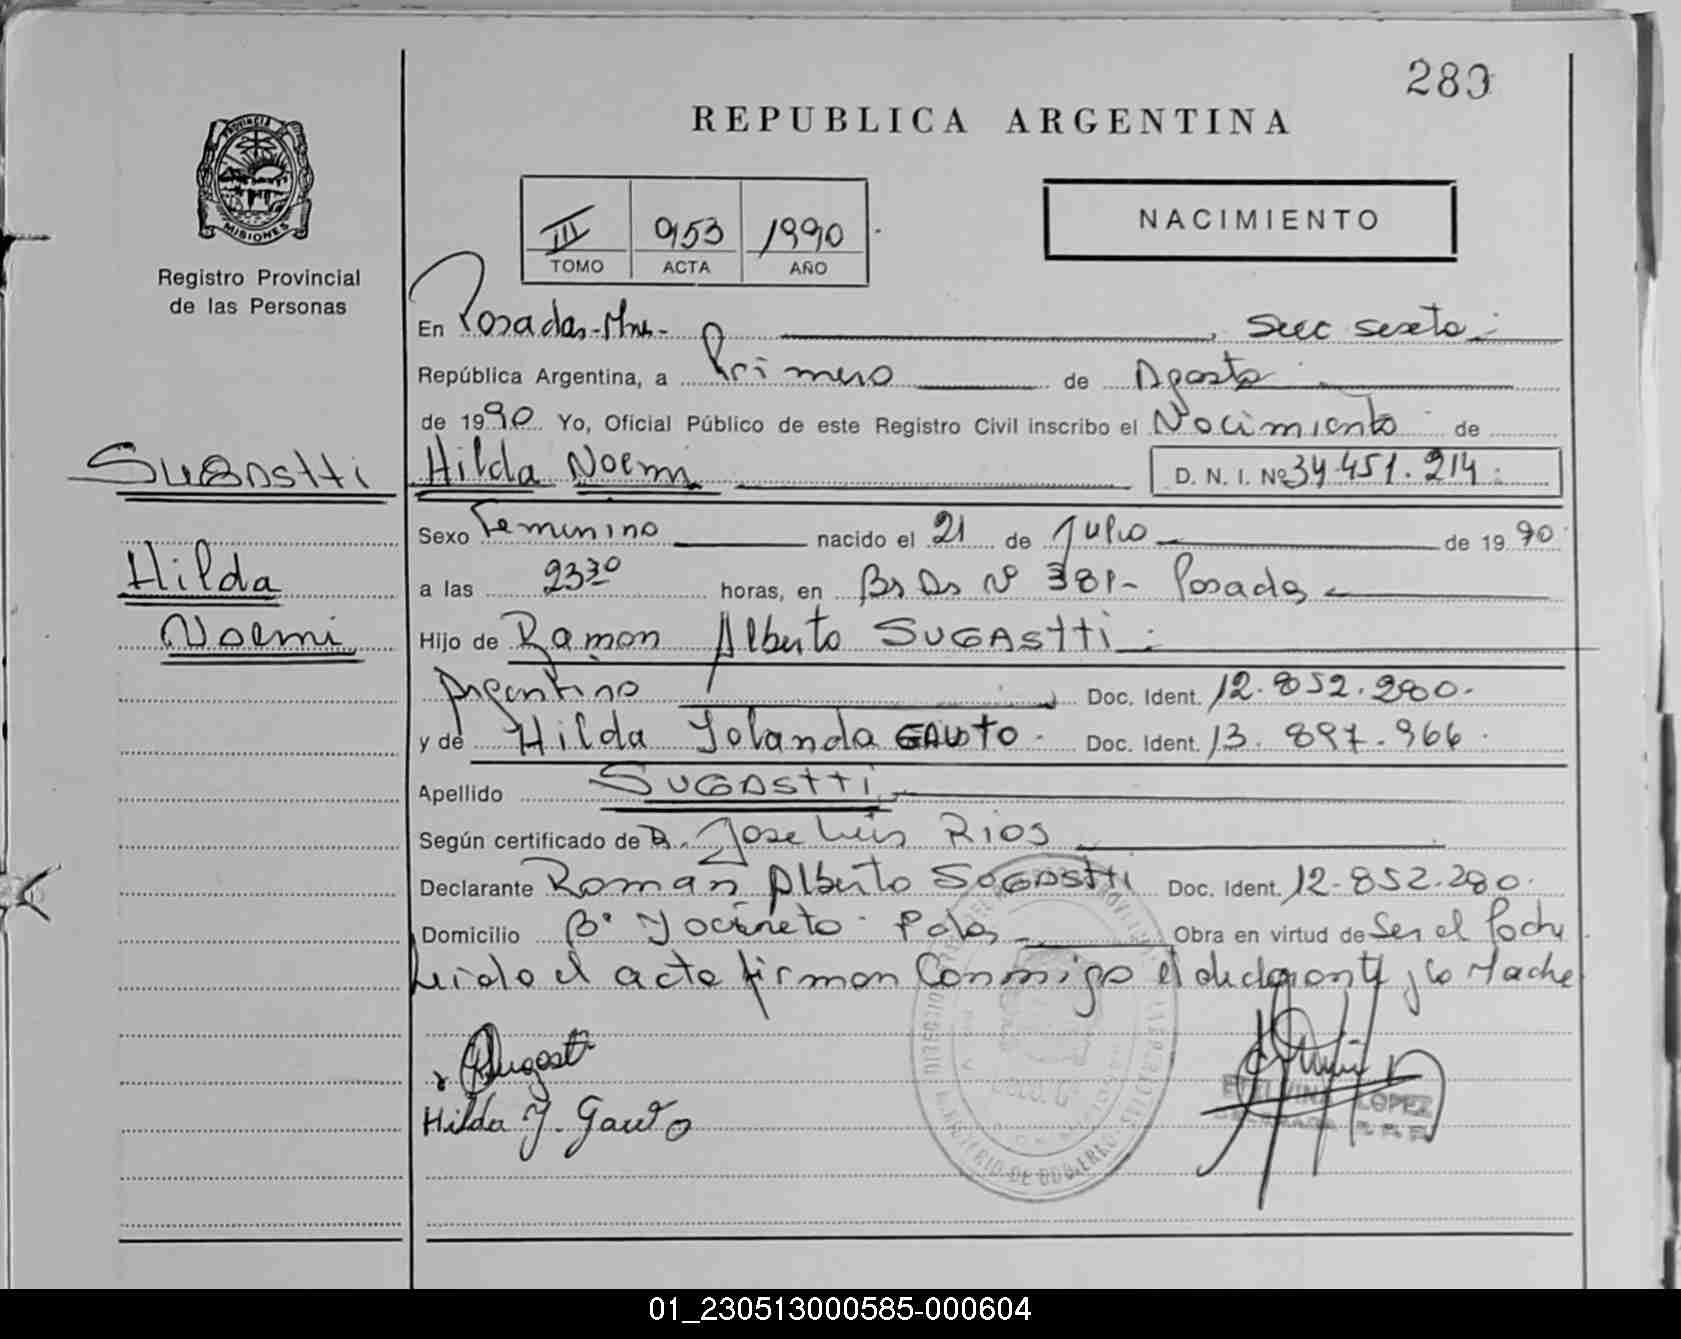 289
REPUBLICA ARGENTINA
PROVINCIA DE
MISIONES
Registro Provincial
de las Personas
III 953 1990
TOMO ACTA AÑO
NACIMIENTO
En Posadas-Mns- , Secc sexta
República Argentina, a Primero de Agosto
de 1990 Yo, Oficial Público de este Registro Civil inscribo el Nacimiento de
SUGAStti Hilda Noemi D. N. I. Nº 34.451.214
Sexo Femenino nacido el 21 de Julio de 1990
Hilda
a las 23³⁰ horas, en Bs As Nº 381- Posadas
Noemi
Hijo de Ramón Alberto SUGAStti
Argentino Doc. Ident. 12.852.280.
y de Hilda Yolanda GAUTO. Doc. Ident. 13.897.966.
Apellido SUGAStti
Según certificado de D. Jose Luis RIOS
Declarante Roman Alberto SUGAStti Doc. Ident. 12-852.280.
Domicilio Bº Pdas Obra en virtud de Ser el Padre
Leido el acta firman conmigo el declarante y la Madre
Hilda Y. Gauto
LOPEZ
MINISTERIO DE GOBIERNO
01_230513000585-000604